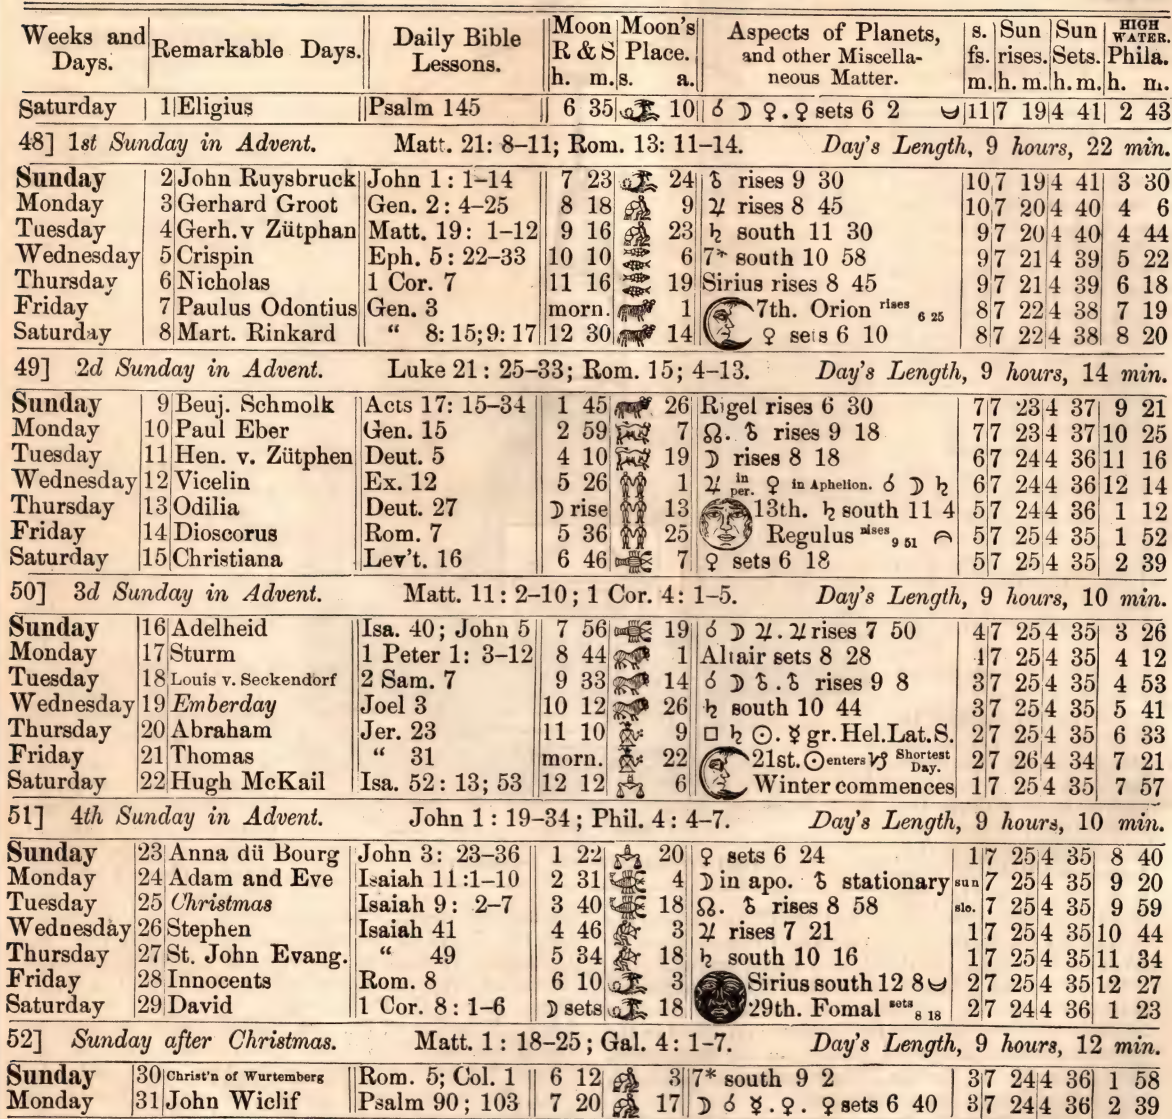 Weeks and Days. Remarkable Days. Daily Bible Lessons. Moon R & S h. m. Moon's Place. s. a. Aspects of Planets, and other Miscellaneous Matter. s. fs. m. Sun rises. h. m. Sun Sets. h. m. HIGH WATER. Phila. h. m.
Saturday 1 Eligius Psalm 145 6 35 10 ☌ ☽ ♀. ♀ sets 6 2 11 7 19 4 41 2 43
48] 1st Sunday in Advent. Matt. 21: 8-11; Rom. 13: 11-14. Day's Length, 9 hours, 22 min.
Sunday 2 John Ruysbruck John 1: 1-14 7 23 24 ♅ rises 9 30 10 7 19 4 41 3 30
Monday 3 Gerhard Groot Gen. 2: 4-25 8 18 9 ♃ rises 8 45 10 7 20 4 40 4 6
Tuesday 4 Gerh.v Zütphan Matt. 19: 1-12 9 16 23 ♄ south 11 30 9 7 20 4 40 4 44
Wednesday 5 Crispin Eph. 5: 22-33 10 10 6 7* south 10 58 9 7 21 4 39 5 22
Thursday 6 Nicholas 1 Cor. 7 11 16 19 Sirius rises 8 45 9 7 21 4 39 6 18
Friday 7 Paulus Odontius Gen. 3 morn. 1 7th. Orion rises 6 25 8 7 22 4 38 7 19
Saturday 8 Mart. Rinkard " 8: 15; 9: 17 12 30 14 ♀ sets 6 10 8 7 22 4 38 8 20
49] 2d Sunday in Advent. Luke 21: 25-33; Rom. 15; 4-13. Day's Length, 9 hours, 14 min.
Sunday 9 Beuj. Schmolk Acts 17: 15-34 1 45 26 Rigel rises 6 30 7 7 23 4 37 9 21
Monday 10 Paul Eber Gen. 15 2 59 7 ☊. ♅ rises 9 18 7 7 23 4 37 10 25
Tuesday 11 Hen. v. Zütphen Deut. 5 4 10 19 ☽ rises 8 18 6 7 24 4 36 11 16
Wednesday 12 Vicelin Ex. 12 5 26 1 ♃ in per. ♀ in Aphelion. ☌ ☽ ♄ 6 7 24 4 36 12 14
Thursday 13 Odilia Deut. 27 ☽ rise 13 13th. ♄ south 11 4 5 7 24 4 36 1 12
Friday 14 Dioscorus Rom. 7 5 36 25 Regulus rises 9 51 5 7 25 4 35 1 52
Saturday 15 Christiana Lev't. 16 6 46 7 ♀ sets 6 18 5 7 25 4 35 2 39
50] 3d Sunday in Advent. Matt. 11: 2-10; 1 Cor. 4: 1-5. Day's Length, 9 hours, 10 min.
Sunday 16 Adelheid Isa. 40; John 5 7 56 19 ☌ ☽ ♃. ♃ rises 7 50 4 7 25 4 35 3 26
Monday 17 Sturm 1 Peter 1: 3-12 8 44 1 Altair sets 8 28 4 7 25 4 35 4 12
Tuesday 18 Louis v. Seckendorf 2 Sam. 7 9 33 14 ☌ ☽ ♅. ♅ rises 9 8 3 7 25 4 35 4 53
Wednesday 19 Emberday Joel 3 10 12 26 ♄ south 10 44 3 7 25 4 35 5 41
Thursday 20 Abraham Jer. 23 11 10 9 □ ♄ ☉. ☿ gr. Hel. Lat. S. 2 7 25 4 35 6 33
Friday 21 Thomas " 31 morn. 22 21st. ☉ enters ♑ Shortest Day. 2 7 26 4 34 7 21
Saturday 22 Hugh McKail Isa. 52: 13; 53 12 12 6 Winter commences 1 7 25 4 35 7 57
51] 4th Sunday in Advent. John 1: 19-34; Phil. 4: 4-7. Day's Length, 9 hours, 10 min.
Sunday 23 Anna dü Bourg John 3: 23-36 1 22 20 ♀ sets 6 24 1 7 25 4 35 8 40
Monday 24 Adam and Eve Isaiah 11:1-10 2 31 4 ☽ in apo. ♅ stationary sun 7 25 4 35 9 20
Tuesday 25 Christmas Isaiah 9: 2-7 3 40 18 ☊. ♅ rises 8 58 slo. 7 25 4 35 9 59
Wednesday 26 Stephen Isaiah 41 4 46 3 ♃ rises 7 21 1 7 25 4 35 10 44
Thursday 27 St. John Evang. " 49 5 34 18 ♄ south 10 16 1 7 25 4 35 11 34
Friday 28 Innocents Rom. 8 6 10 3 Sirius south 12 8 2 7 25 4 35 12 27
Saturday 29 David 1 Cor. 8: 1-6 ☽ sets 18 29th. Fomal sets 8 18 2 7 24 4 36 1 23
52] Sunday after Christmas. Matt. 1: 18-25; Gal. 4: 1-7. Day's Length, 9 hours, 12 min.
Sunday 30 Christ'n of Wurtemberg Rom. 5; Col. 1 6 12 3 7* south 9 2 3 7 24 4 36 1 58
Monday 31 John Wiclif Psalm 90; 103 7 20 17 ☽ ☌ ☿. ♀. ♀ sets 6 40 3 7 24 4 36 2 39